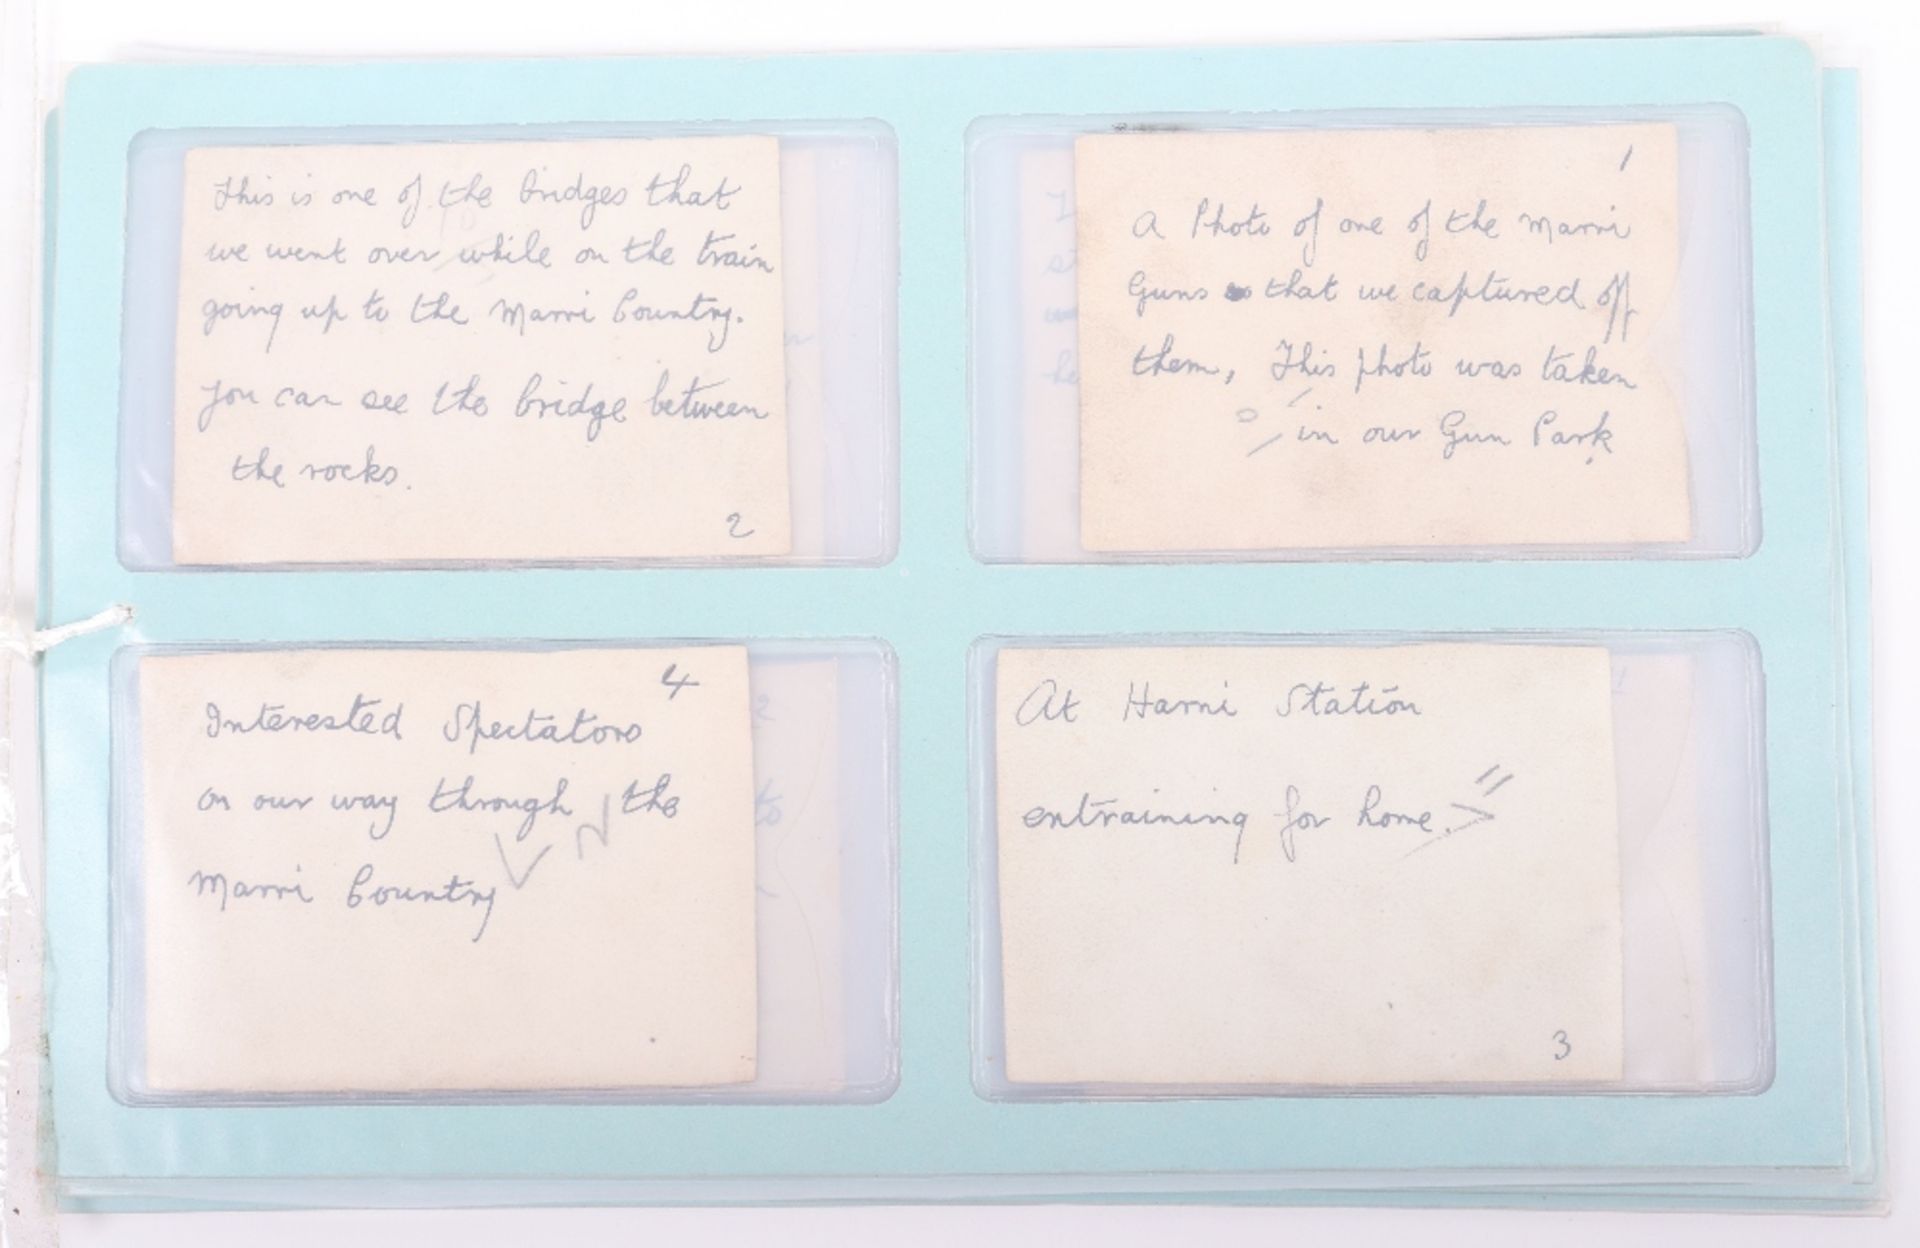 This is one of the bridges that
we went over while on the train
going up to the Marri Country.
You can see the bridge between
the rocks.
2
1
A Photo of one of the Marri
Guns that we captured off
them, This photo was taken
in our Gun Park.
4
Interested Spectators
on our way through the
Marri Country
At Harni Station
entraining for home.
3